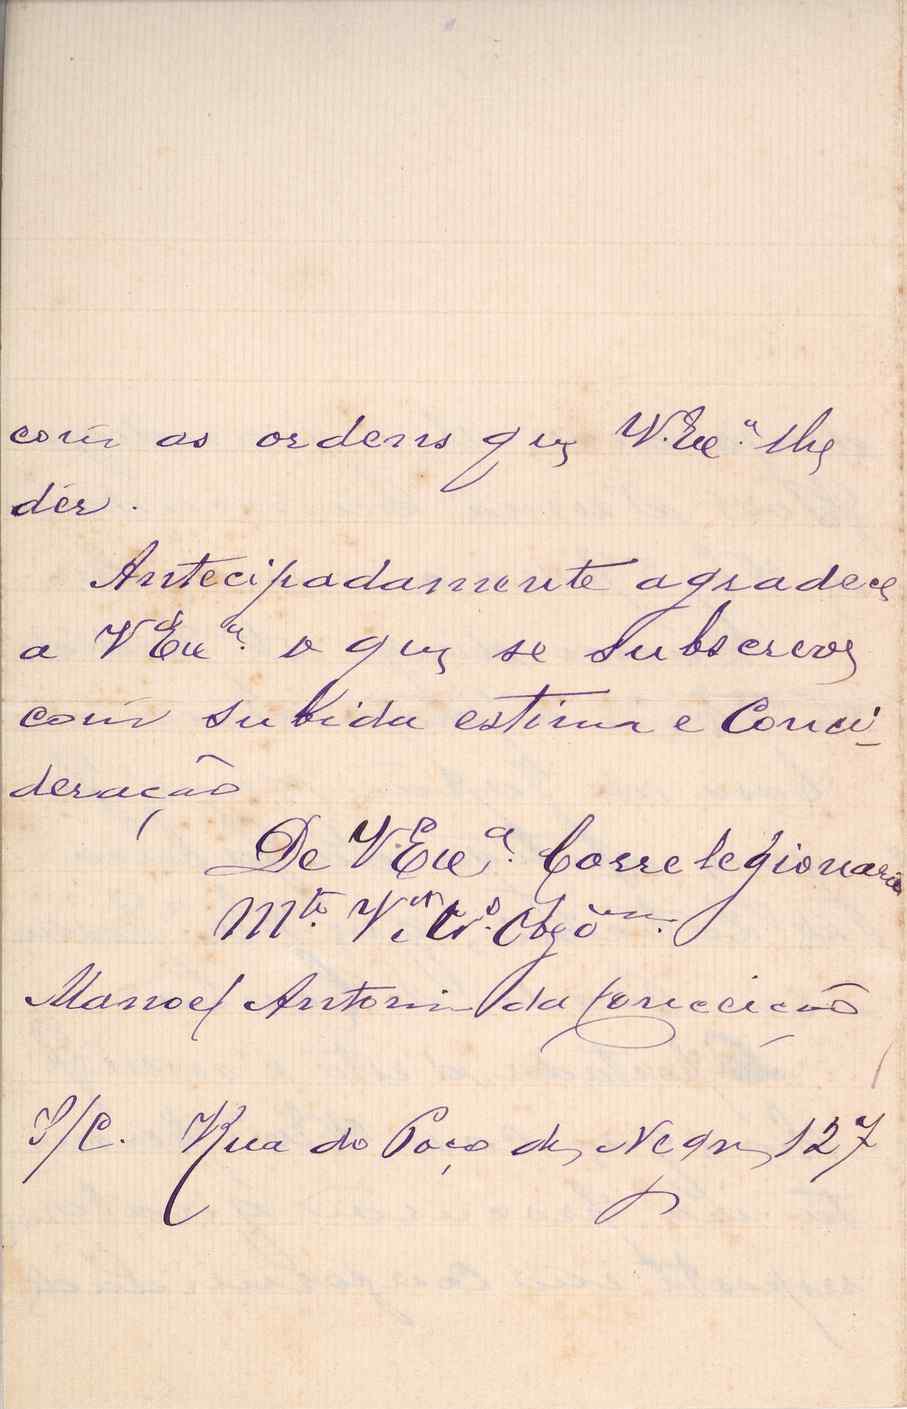 com as ordens que V. Exc.ª lhe
der.
Antecipadamente agradece
a V Exc.ª o que se subscreve
com subida estima e Conci-
deração
De V. Exc.ª Correlegionario
Mto. Vor. Cro. Obgdo
Manoel Antonio da Conceição
S/C. Rua do Poço dos Negros 127